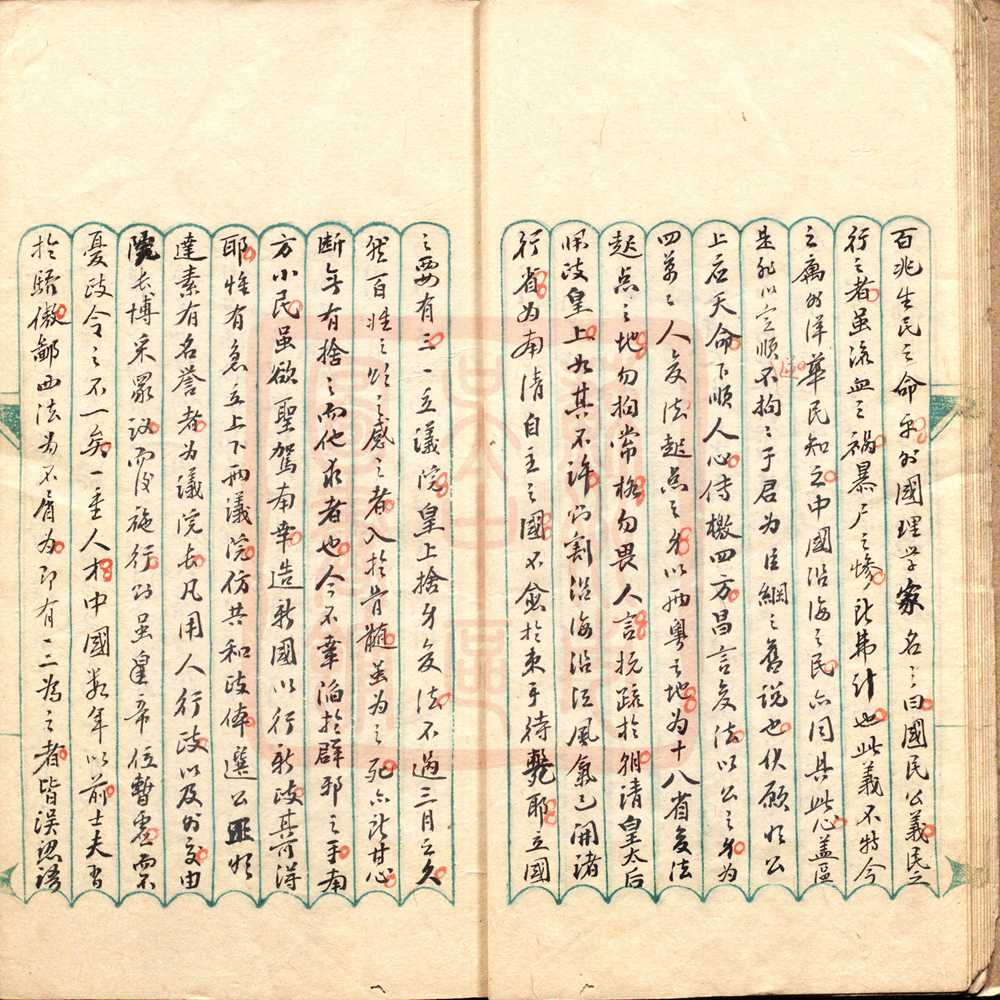 百兆生民之命乎外國理学家名之曰國民公義民之
行之者虽流血之禍暴尸之惨所弗计也此義不特今
之寓外洋華民知之中國沿海之民亦同具此心盖區
是非以定順逆不拘之于君为臣綱之舊説也伏願明公
上应天命下順人心傳檄四方昌言变法以公之身为
四萬之人变法起点之身以两粤之地为十八省变法
起点之地勿拘常格勿畏人言抗疏於朝請皇太后
归政皇上如其不許則割沿海沿江風氣已開諸
行省为南清自主之國不愈於束手待斃耶立國
之要有三一立議院皇上捨身变法不過三月之久
然百姓之頌之感之者入於骨髓虽为之死亦所甘心
断無有捨之而他求者也今不幸陷於群邪之手南
方小民虽欲聖駕南幸造新國以行新政其可得
耶惟有急立上下两議院仿共和政体選公正明
達素有名誉者为議院长凡用人行政以及外交由
院长博采眾议而後施行則虽皇帝位暫虚而不
憂政令之不一矣一重人才中國数年以前士夫習
於驕傲鄙西法为不屑为即有一二為之者皆误認語